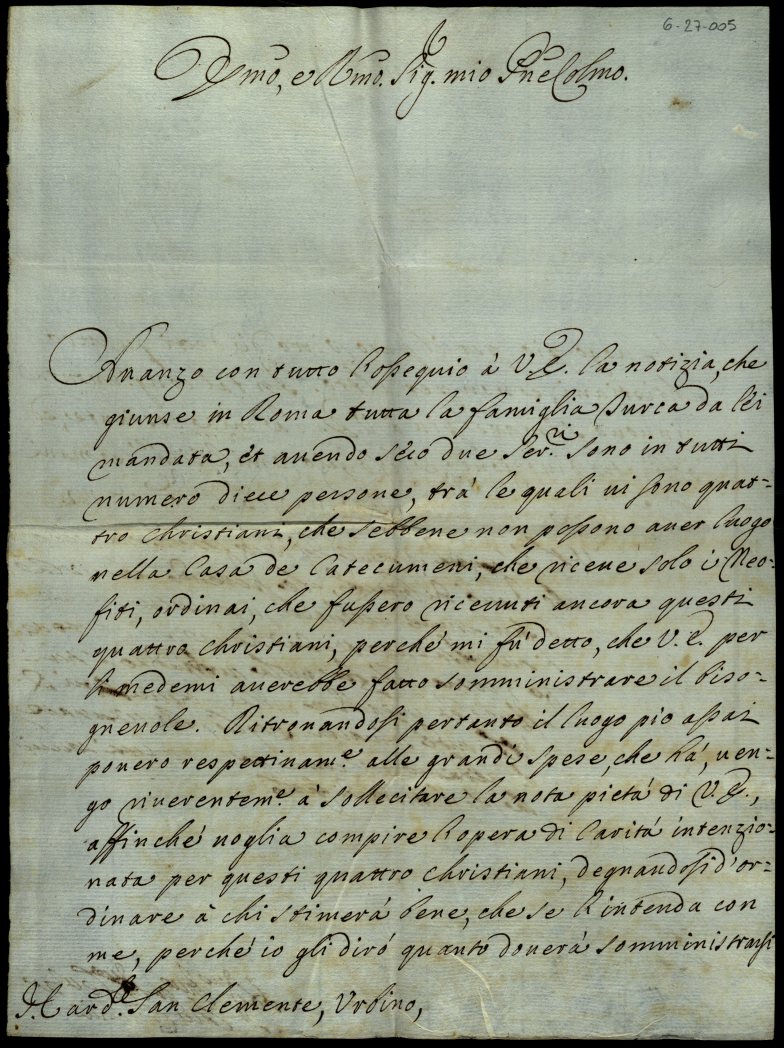 6-27-005
Emo, e Rmo. Sig. mio Pne Colmo.
Auanzo con tutto l'ossequio à V. E. la notizia, che
giunse in Roma tutta la famiglia Turca da lei
mandata, et auendo seco due Ser.ri sono in tutti
numero diece persone, trà le quali ui sono quat=
tro Christiani, che sebbene non possono auer luogo
nella Casa de Catecumeni, che riceue solo i Neo=
fiti, ordinai, che fussero riceuuti ancora questi
quattro Christiani, perché mi fù detto, che V. E. per
li medemi auerebbe fatto somministrare il biso=
gneuole. Ritrouandosi pertanto il luogo pio assai
pouero respettiuam.e alle grandi spese, che hà, uen=
go riuerentem.e à sollecitare la nota pietà di V. E.,
affinché uoglia compire l'opera di Carità intenzio=
nata per questi quattro Christiani, degnandosi d'or=
dinare à chi stimerà bene, che se l'intenda con
me, perché io gli dirò quanto douerà somministrarsi
S. Card.le San Clemente, Urbino,